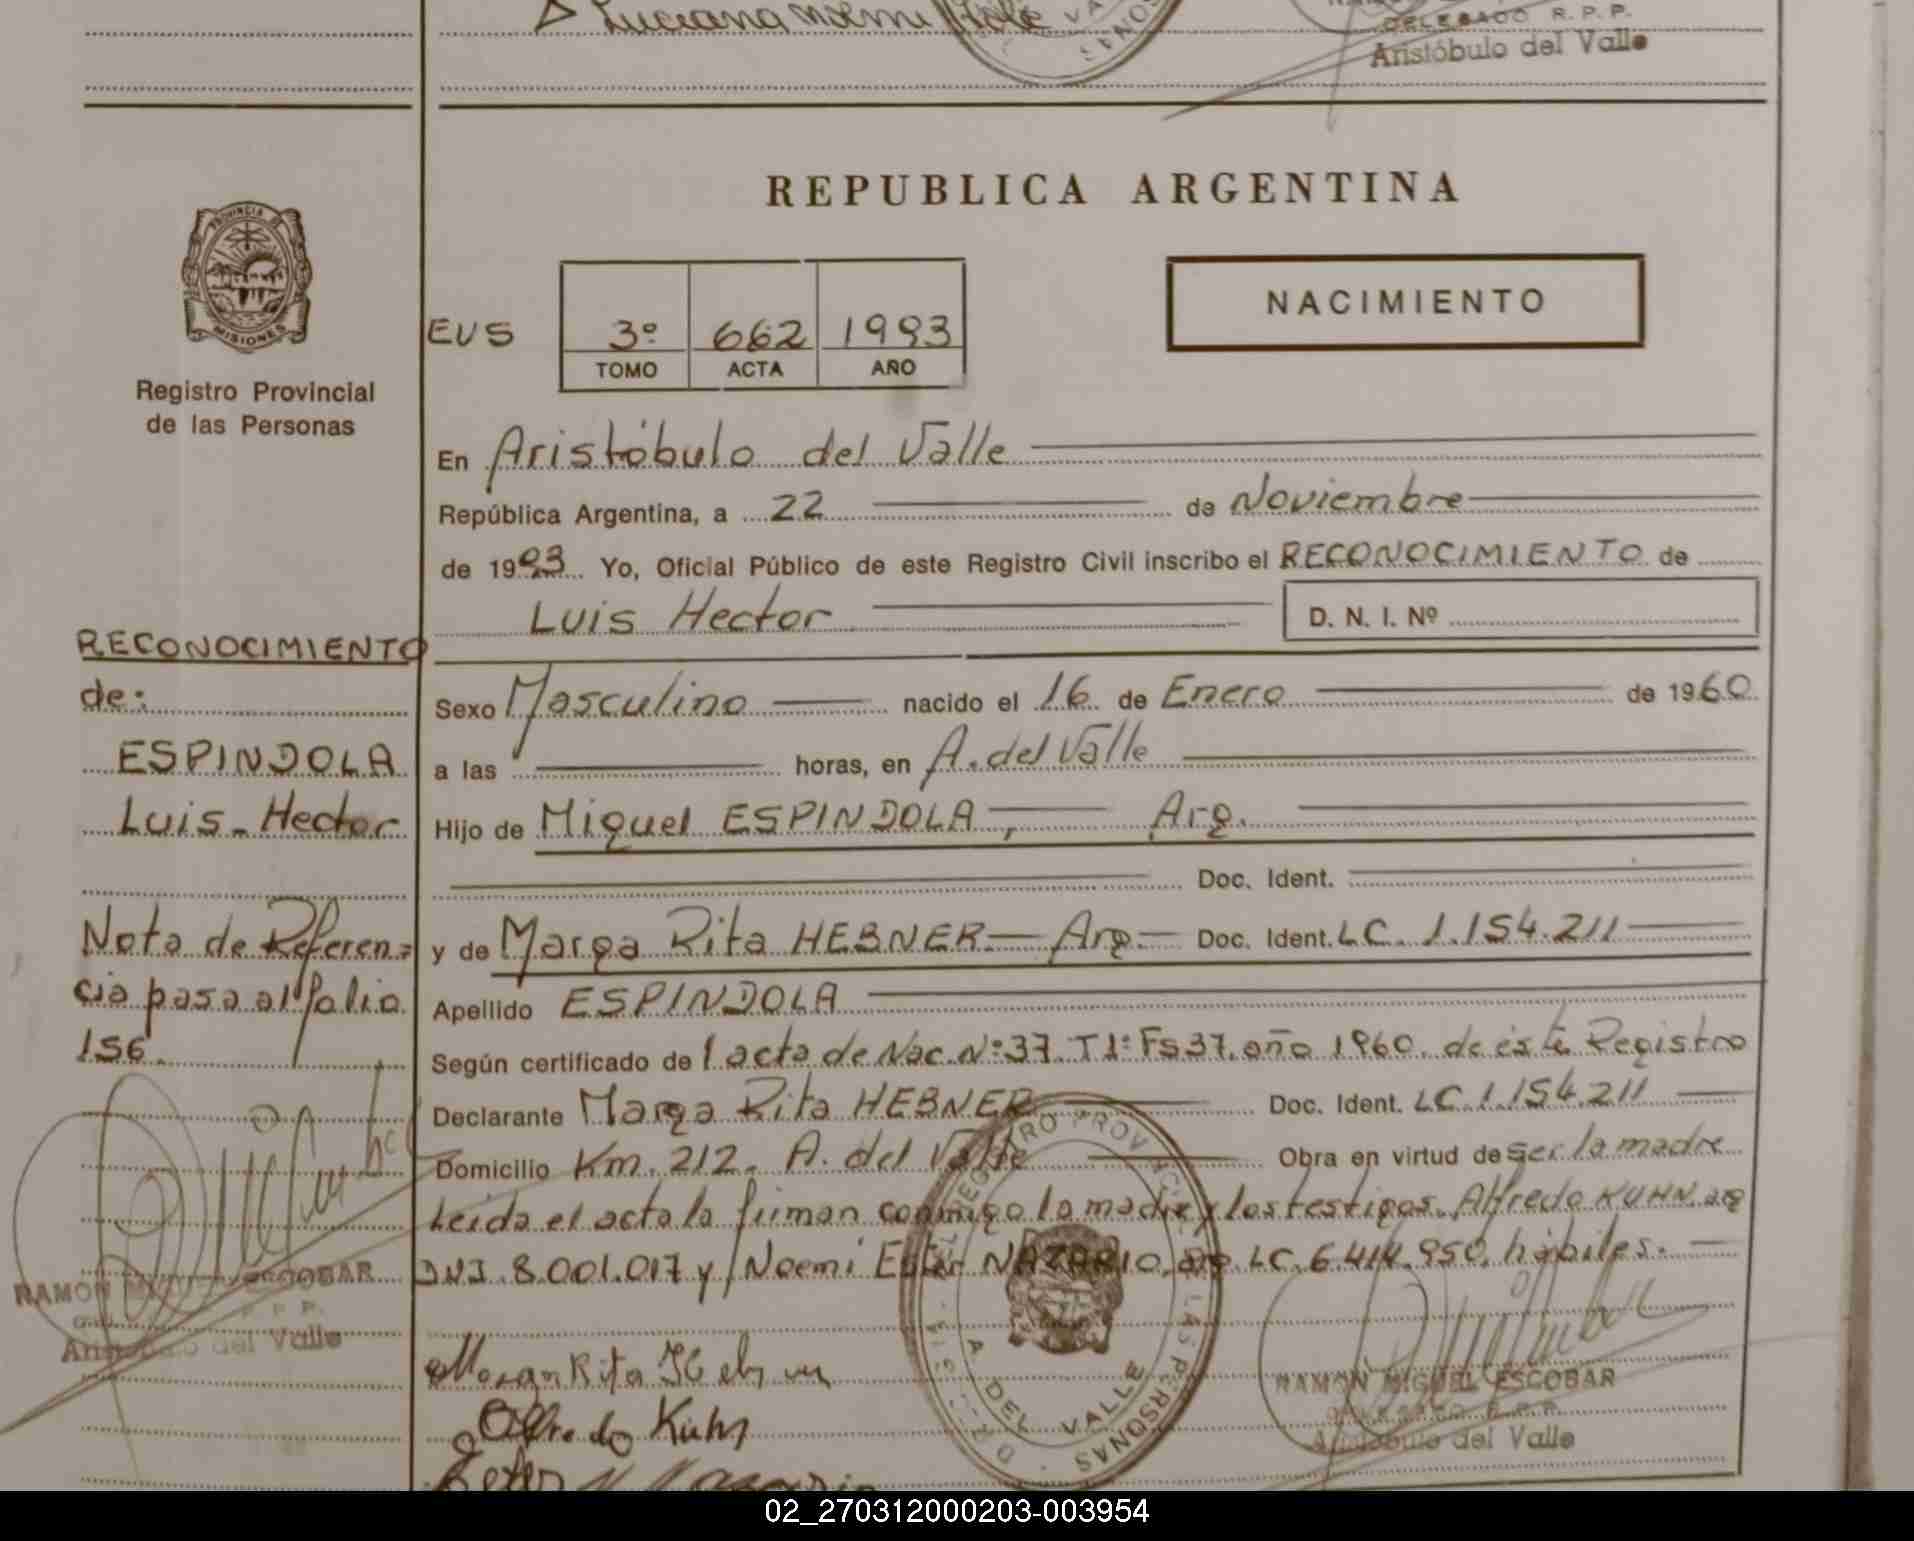 Luciana Noemi
DELEGADO R. P. P.
Aristóbulo del Valle
REPUBLICA ARGENTINA
PROVINCIA DE
MISIONES
Registro Provincial
de las Personas
NACIMIENTO
EUS 3º 662 1993
TOMO ACTA AÑO
En Aristóbulo del Valle
República Argentina, a 22 de Noviembre
de 1993 Yo, Oficial Público de este Registro Civil inscribo el RECONOCIMIENTO de
Luis Hector D. N. I. Nº
RECONOCIMIENTO
de:
ESPINDOLA
Luis-Hector
Nota de Referen=
cia pasa al folio
156.
Sexo Masculino nacido el 16 de Enero de 1960
a las horas, en A. del Valle
Hijo de Miguel ESPINDOLA, Arg.
Doc. Ident.
y de Marga Rita HEBNER- Arg- Doc. Ident. LC. 1.154.211
Apellido ESPINDOLA
Según certificado de l acta de Nac. Nº 37 T1º Fs 37. año 1960. de éste Registro
Declarante Marga Rita HEBNER Doc. Ident. LC.1.154.211
Domicilio Km. 212. A. del Valle Obra en virtud de ser la madre
Leida el acta la firman conmigo la madre y los testigos. Alfredo KUHN. arg
DNI. 8.001.017 y Noemi Ester NAZARIO, arg. LC. 6.414.950, hábiles.
RAMON MIGUEL ESCOBAR
R. P. P.
Aristóbulo del Valle
Alfredo Kuhn
REGISTRO PROVINCIAL DE LAS PERSONAS
A. DEL VALLE
RAMON MIGUEL ESCOBAR
DELEGADO R.P.P.
Aristóbulo del Valle
02_270312000203-003954